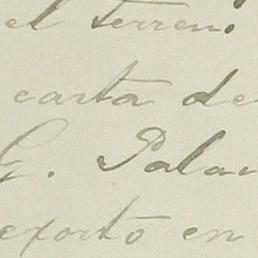 el terreno
carta de
G. Pala
exortó en